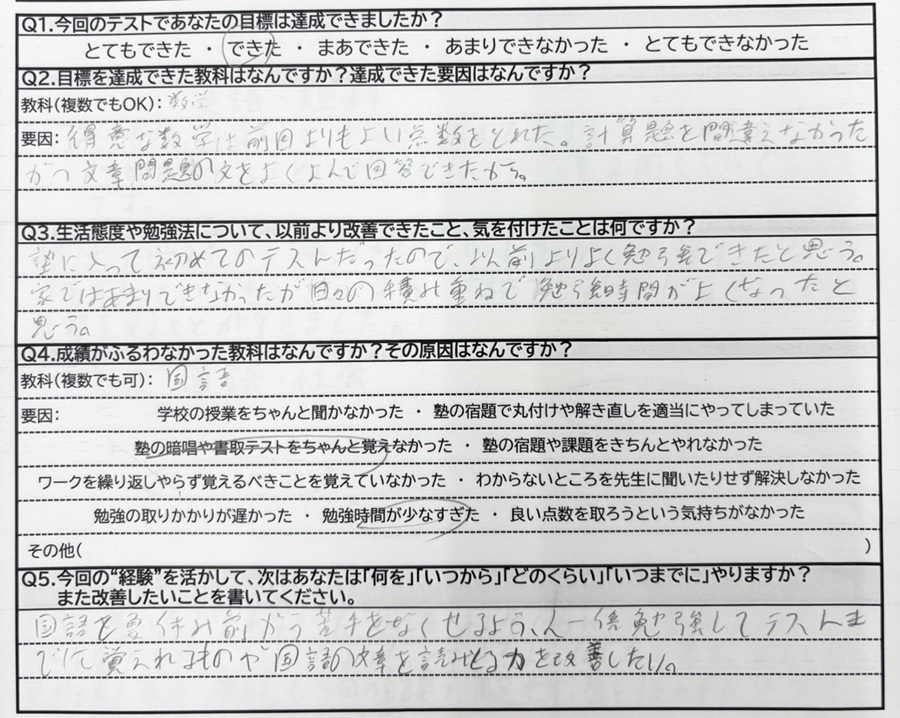 Q1.今回のテストであなたの目標は達成できましたか？
とてもできた ・ できた ・ まあできた ・ あまりできなかった ・ とてもできなかった
Q2.目標を達成できた教科はなんですか？達成できた要因はなんですか？
教科(複数でもOK)：数学
要因：得意な数学は前回よりもよい点数をとれた。計算題を間違えなかった
かつ文章問題の文をよくよんで回答できたから。
Q3.生活態度や勉強法について、以前より改善できたこと、気を付けたことは何ですか？
塾に入って初めてのテストだったので、以前よりよく勉強できたと思う。
家ではあまりできなかったが日々の積み重ねで勉強時間がよくなったと
思う。
Q4.成績がふるわなかった教科はなんですか？その原因はなんですか？
教科(複数でも可)：国語
要因： 学校の授業をちゃんと聞かなかった ・ 塾の宿題で丸付けや解き直しを適当にやってしまっていた
塾の暗唱や書取テストをちゃんと覚えなかった ・ 塾の宿題や課題をきちんとやれなかった
ワークを繰り返しやらず覚えるべきことを覚えていなかった ・ わからないところを先生に聞いたりせず解決しなかった
勉強の取りかかりが遅かった ・ 勉強時間が少なすぎた ・ 良い点数を取ろうという気持ちがなかった
その他( )
Q5.今回の“経験”を活かして、次はあなたは「何を」「いつから」「どのくらい」「いつまでに」やりますか？
また改善したいことを書いてください。
国語を夏休み前から苦手をなくせるよう、人一倍勉強してテストま
でに覚えれるものや国語の文章を読みとる力を改善したい。